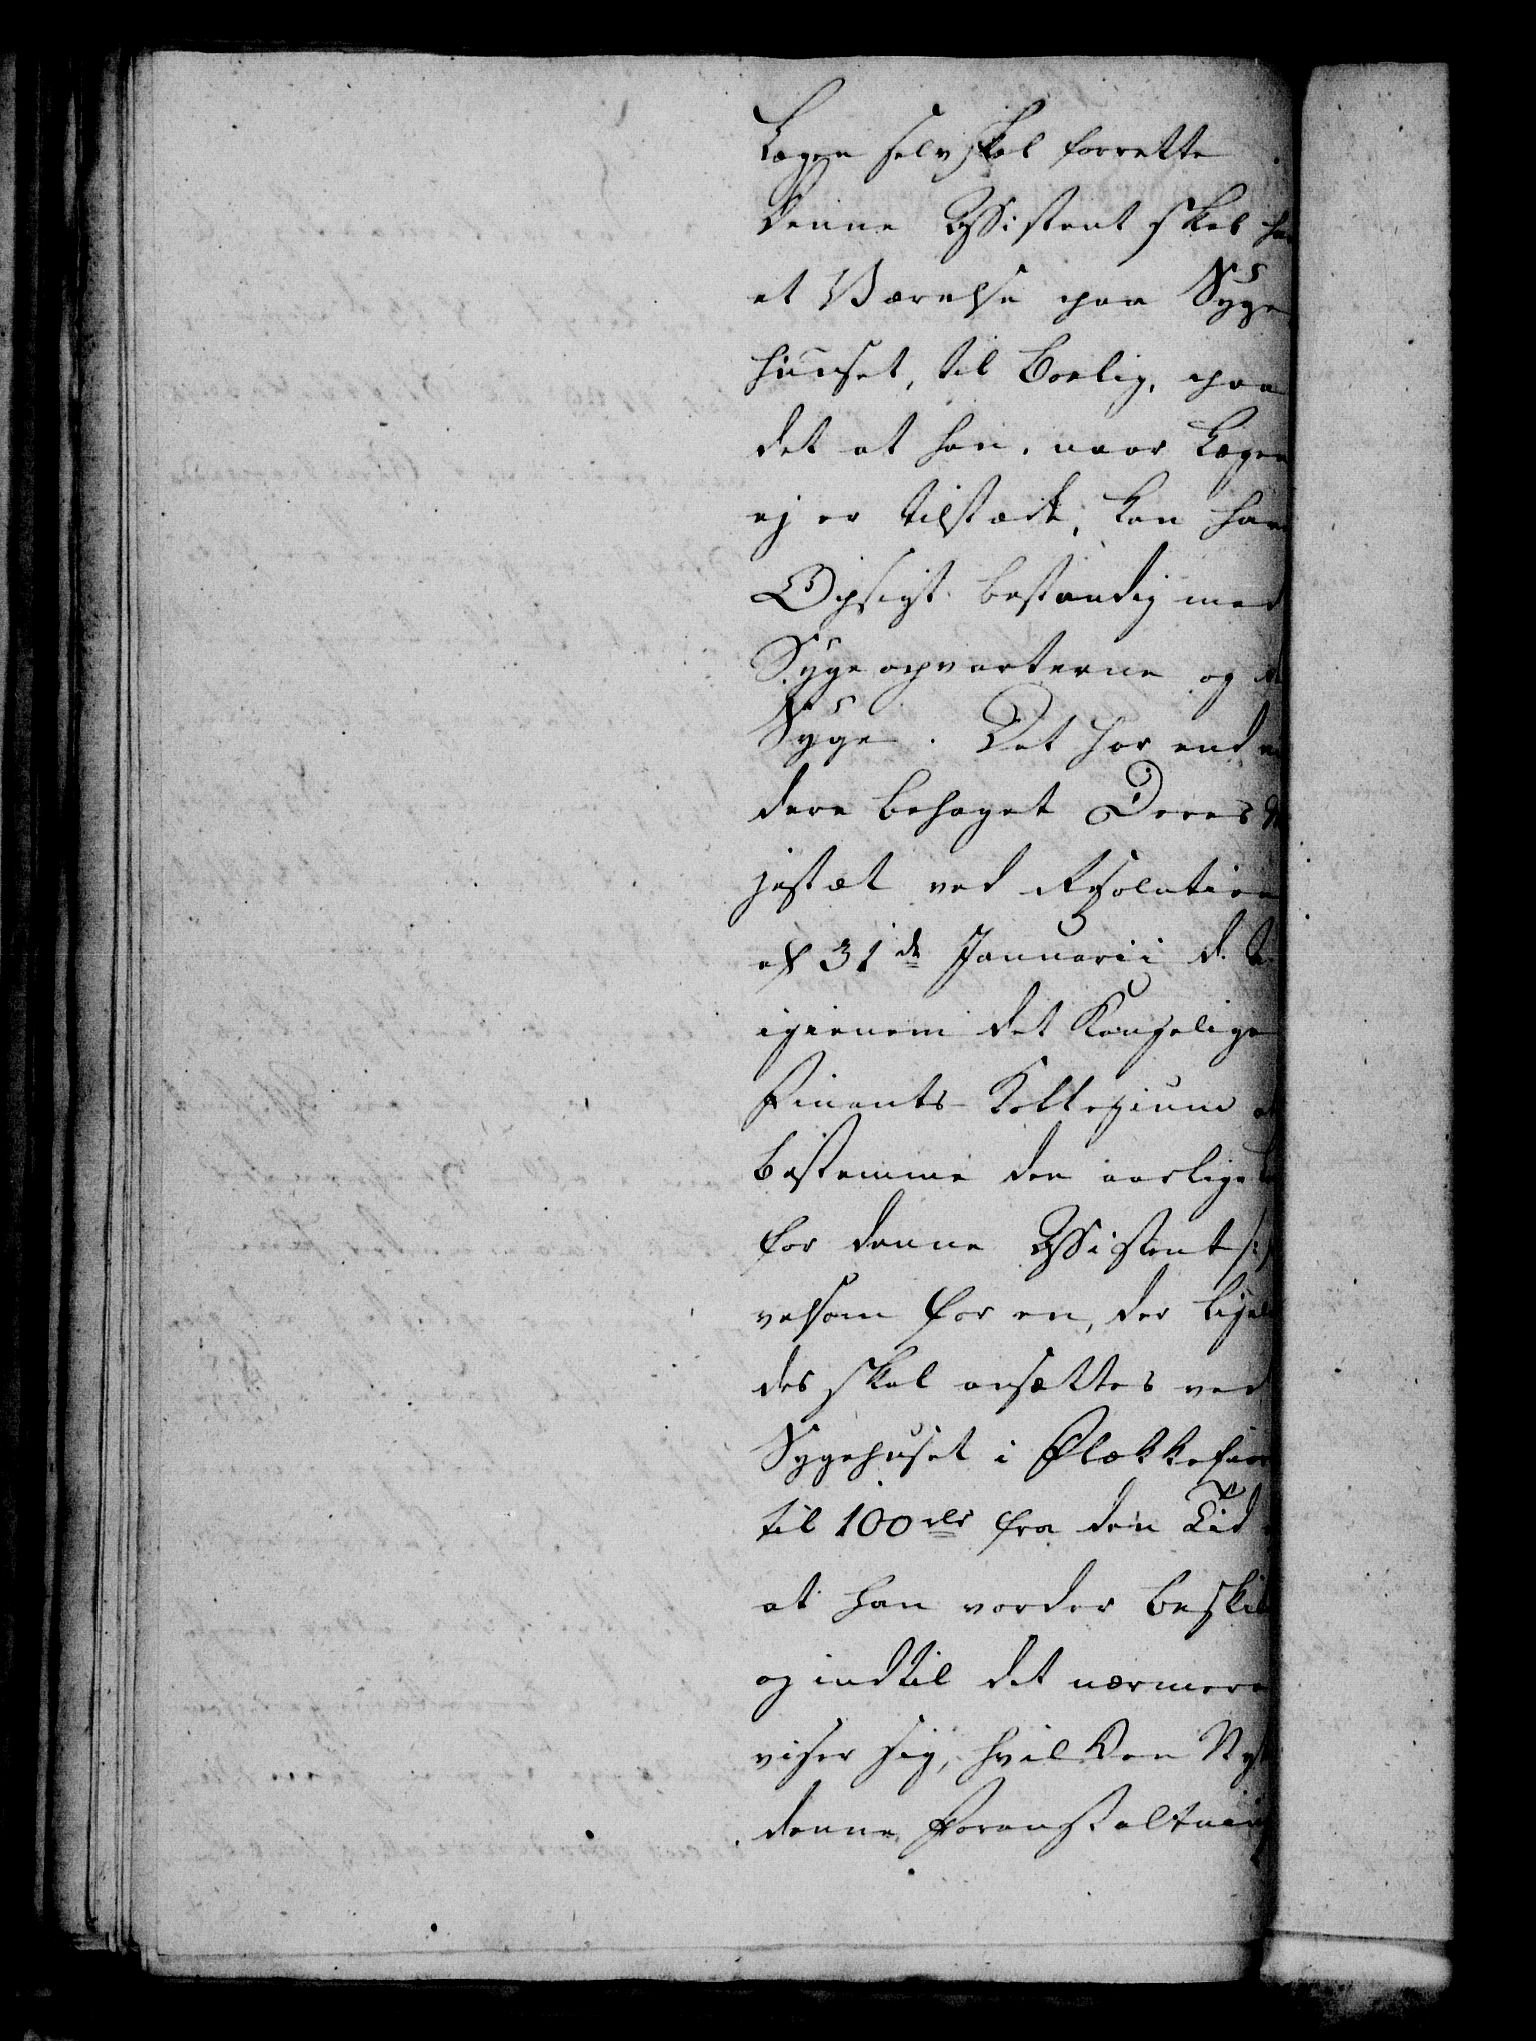 Lægen selv skal forrette.
Denne Assistent skal ha
et Værelse paa Syge
huuset, til Boelig, paa
det at han, naar Lægen
ej er tilstæde, kan have
Opsigt bestandig med
Sygeopvarterne og de
Syge. Det har end vi
dere behaget Deres M
jestæt ved Resolution
af 31de Januarii d. A.
igienem det Kongelige
Finants-Kollegium at
bestemme den aarlige
for denne Assistent, s
velsom for en, der ligel
des skal ansættes ved
Sygehuset i Flækkefior
til 100 rdlr fra den Tid
at han vorder beskik
og indtil det nærmere
viser sig, hvilken Nyt
denne Foranstaltning